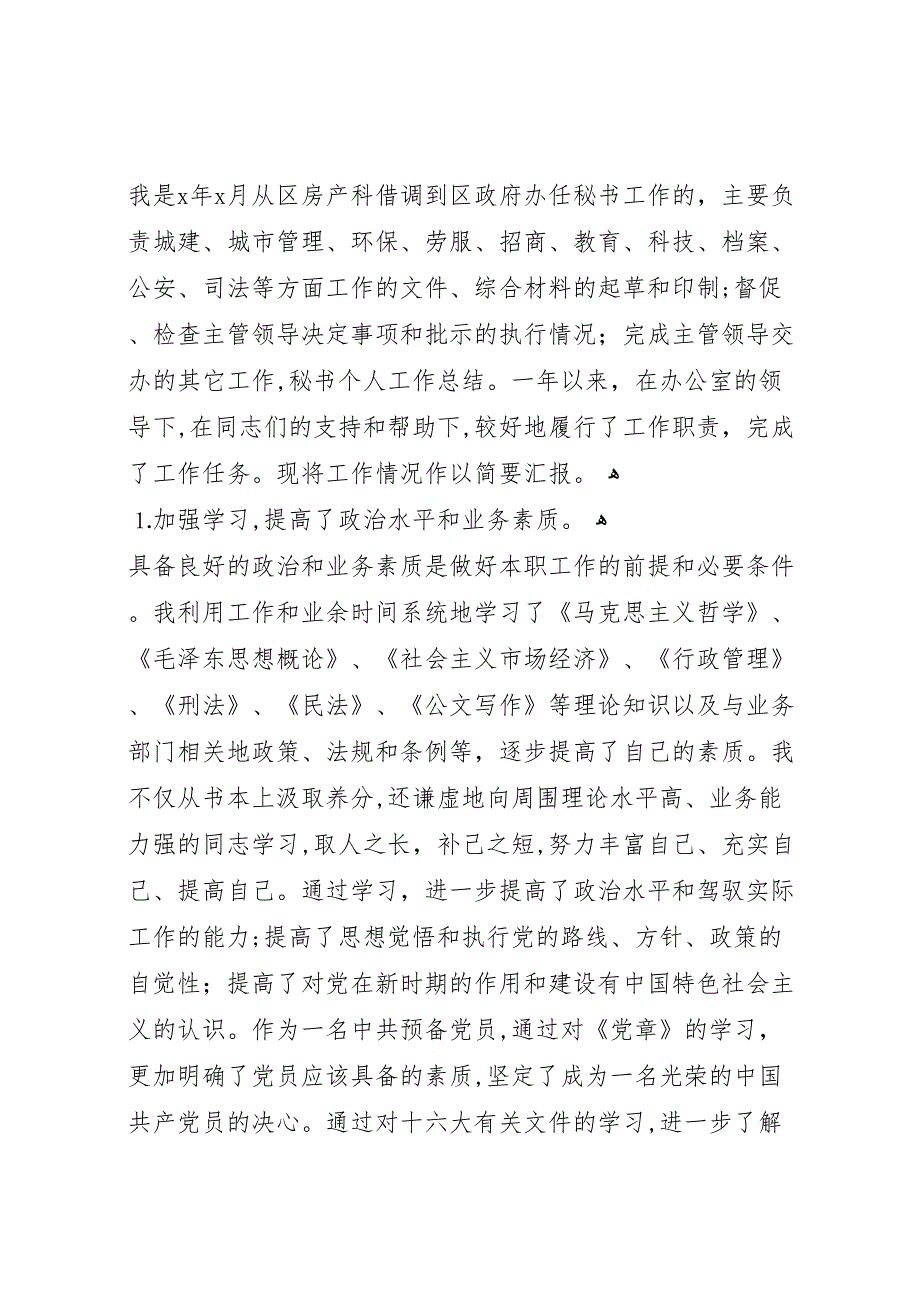 我是x年x月从区房产科借调到区政府办任秘书工作的，主要负
责城建、城市管理、环保、劳服、招商、教育、科技、档案、
公安、司法等方面工作的文件、综合材料的起草和印制;督促
、检查主管领导决定事项和批示的执行情况；完成主管领导交
办的其它工作,秘书个人工作总结。一年以来，在办公室的领
导下,在同志们的支持和帮助下,较好地履行了工作职责，完成
了工作任务。现将工作情况作以简要汇报。 ﻫ
1.加强学习,提高了政治水平和业务素质。 ﻫ
具备良好的政治和业务素质是做好本职工作的前提和必要条件
。我利用工作和业余时间系统地学习了《马克思主义哲学》、
《毛泽东思想概论》、《社会主义市场经济》、《行政管理》
、《刑法》、《民法》、《公文写作》等理论知识以及与业务
部门相关地政策、法规和条例等，逐步提高了自己的素质。我
不仅从书本上汲取养分,还谦虚地向周围理论水平高、业务能
力强的同志学习,取人之长，补己之短,努力丰富自己、充实自
己、提高自己。通过学习，进一步提高了政治水平和驾驭实际
工作的能力;提高了思想觉悟和执行党的路线、方针、政策的
自觉性；提高了对党在新时期的作用和建设有中国特色社会主
义的认识。作为一名中共预备党员,通过对《党章》的学习，
更加明确了党员应该具备的素质,坚定了成为一名光荣的中国
共产党员的决心。通过对十六大有关文件的学习,进一步了解